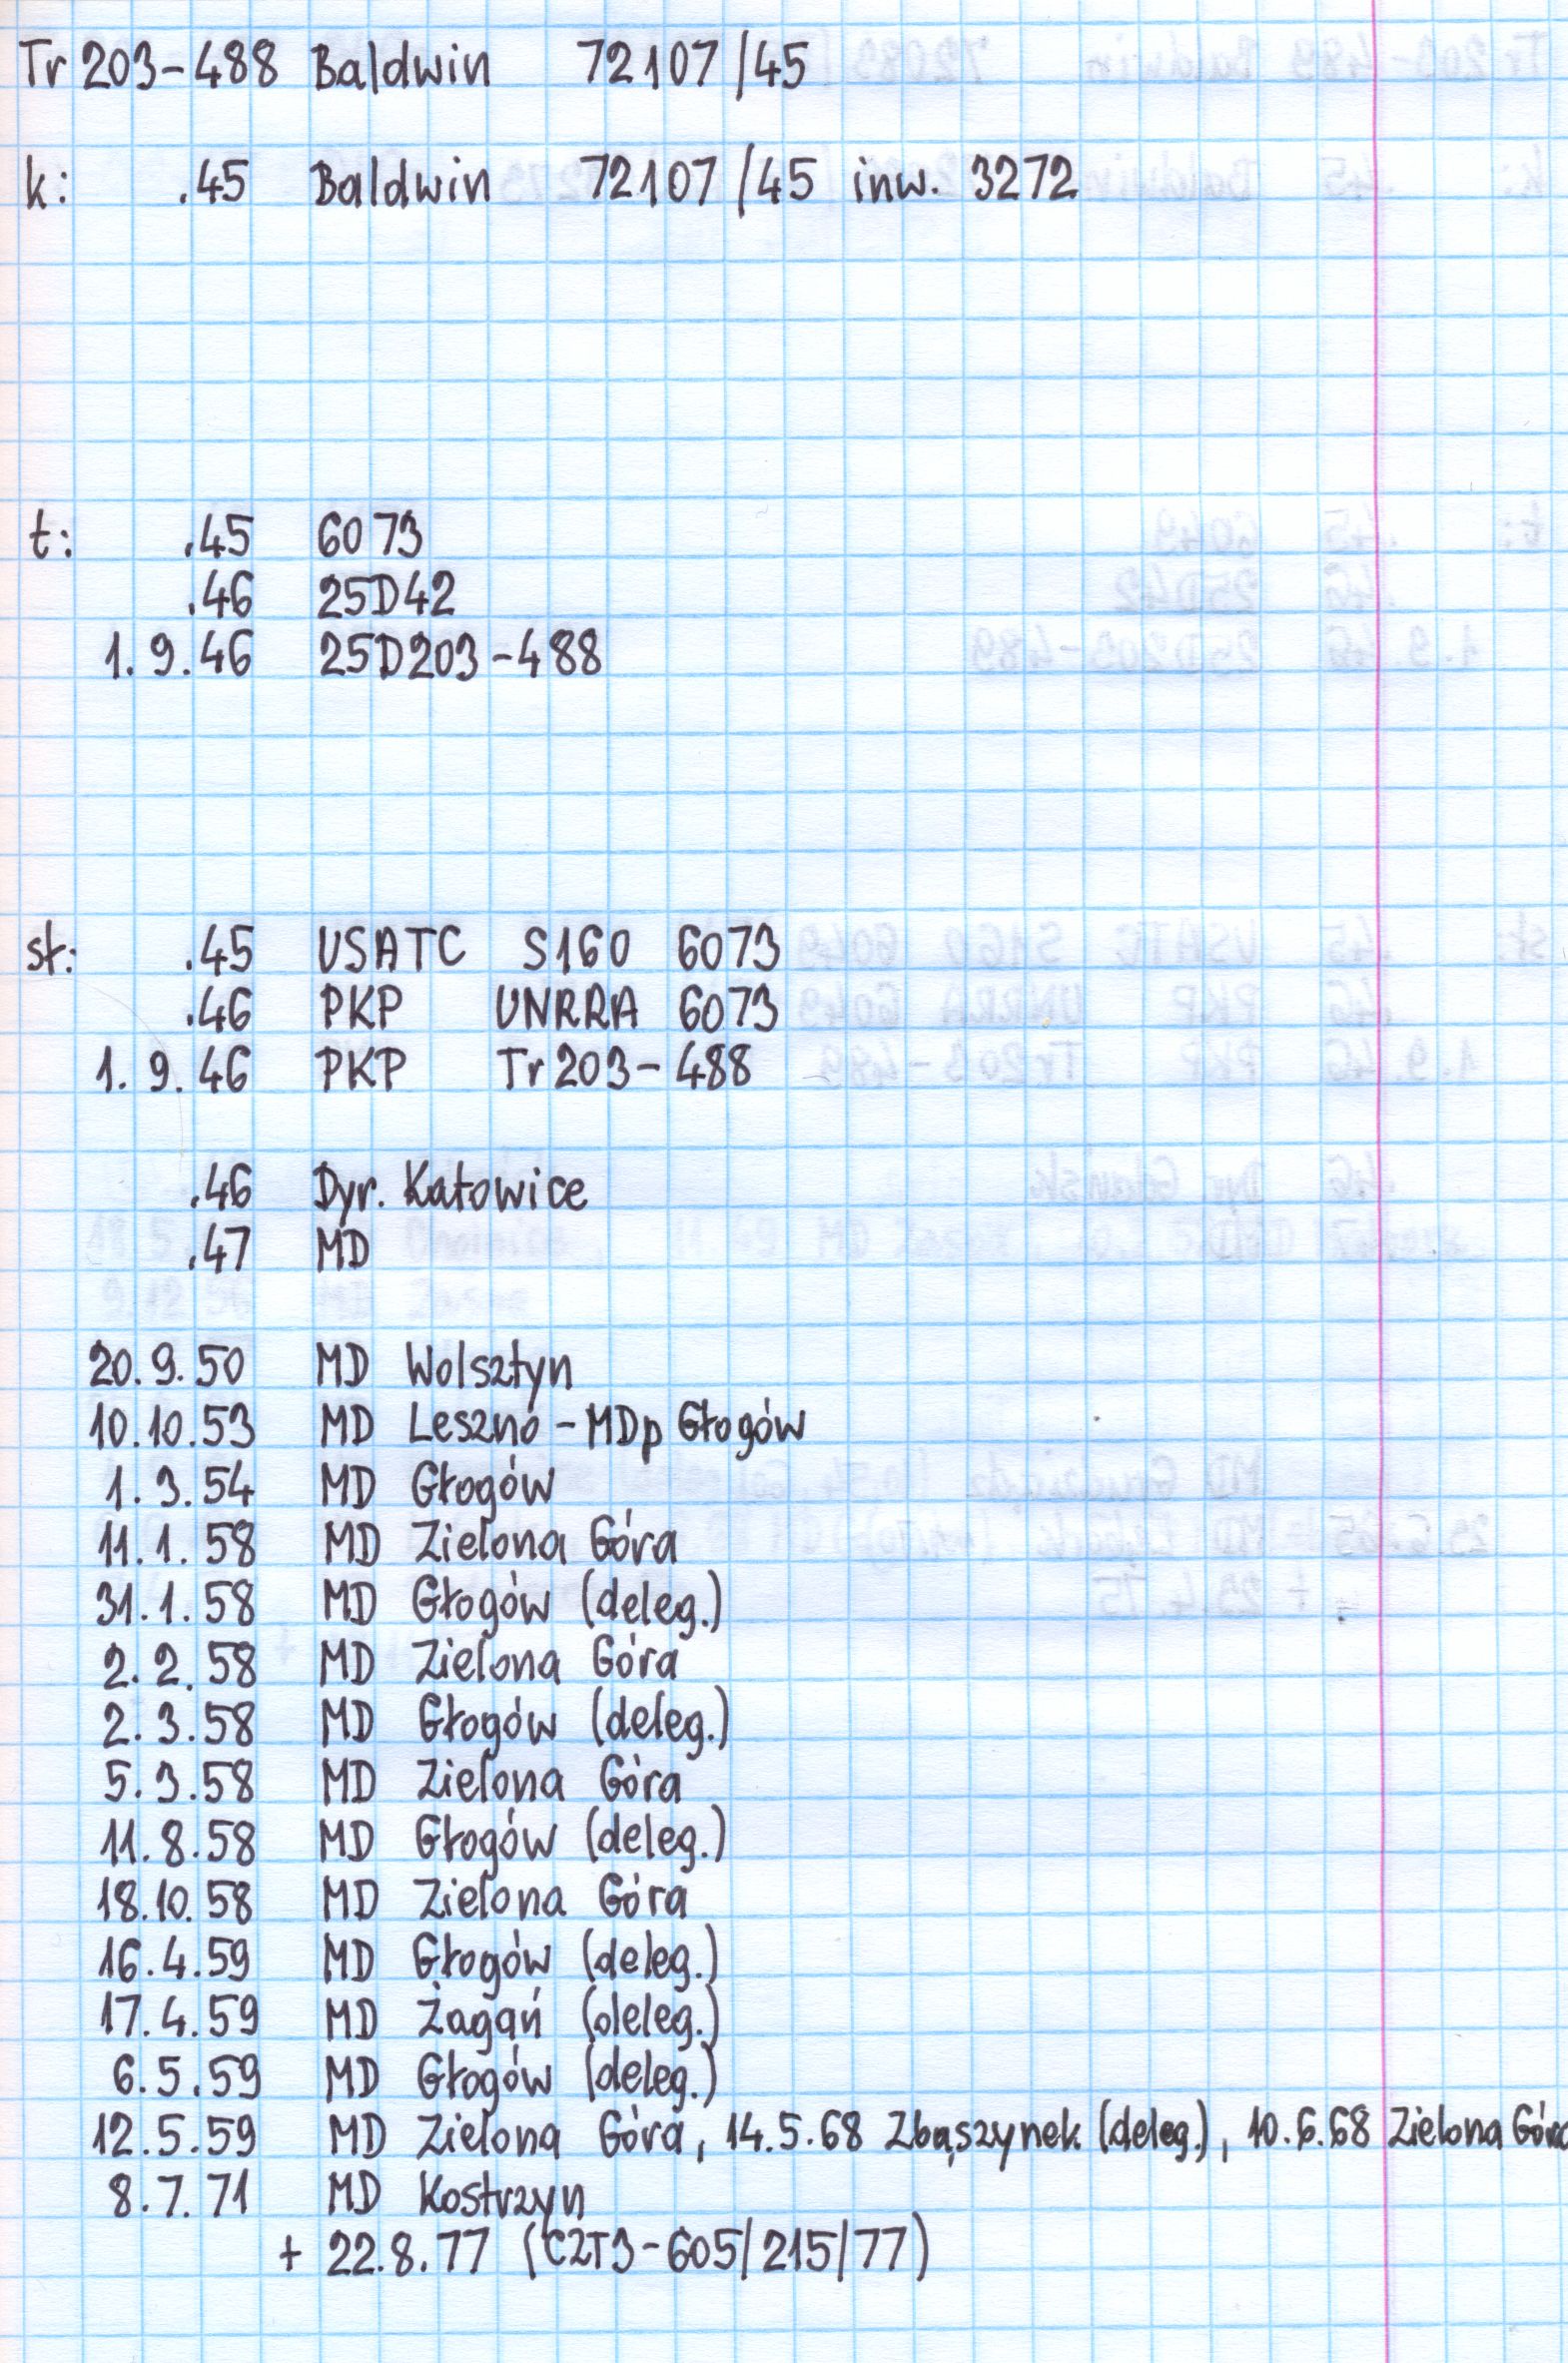 Tr 203-488 Baldwin 72107/45
k: .45 Baldwin 72107/45 inw. 3272
t: .45 6073
.46 25D42
1.9.46 25D203-488
st: .45 USATC S160 6073
.46 PKP UNRRA 6073
1.9.46 PKP Tr 203-488
.46 Dyr. Katowice
.47 MD
20.9.50 MD Wolsztyn
10.10.53 MD Leszno - MDp Głogów
1.3.54 MD Głogów
11.1.58 MD Zielona Góra
31.1.58 MD Głogów (deleg.)
2.2.58 MD Zielona Góra
2.3.58 MD Głogów (deleg.)
5.3.58 MD Zielona Góra
11.8.58 MD Głogów (deleg.)
18.10.58 MD Zielona Góra
16.4.59 MD Głogów (deleg.)
17.4.59 MD Żagań (deleg.)
6.5.59 MD Głogów (deleg.)
12.5.59 MD Zielona Góra, 14.5.68 Zbąszynek (deleg.), 10.6.68 Zielona Góra
8.7.71 MD Kostrzyn
+ 22.8.77 (C2T3-605/215/77)